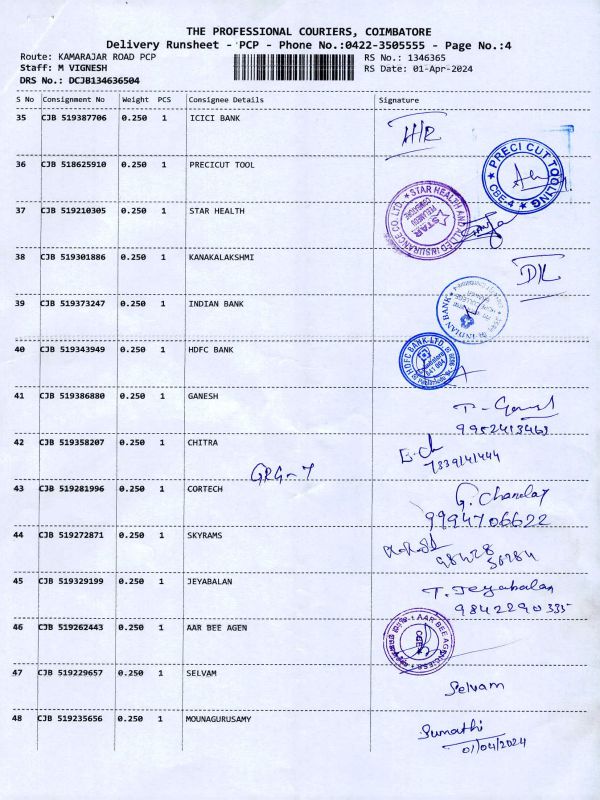 THE PROFESSIONAL COURIERS, COIMBATORE
Delivery Runsheet - PCP - Phone No.:0422-3505555 - Page No.:4
Route: KAMARAJAR ROAD PCP
Staff: M VIGNESH
DRS No.: DCJB134636504
RS No.: 1346365
RS Date: 01-Apr-2024
S No Consignment No Weight PCS Consignee Details Signature
35 CJB 519387706 0.250 1 ICICI BANK
36 CJB 518625910 0.250 1 PRECICUT TOOL
PRECI CUT TOOLING
CBE-4
37 CJB 519210305 0.250 1 STAR HEALTH
STAR HEALTH AND ALLIED INSURANCE CO. LTD.
STAR
38 CJB 519301886 0.250 1 KANAKALAKSHMI
39 CJB 519373247 0.250 1 INDIAN BANK
INDIAN BANK
40 CJB 519343949 0.250 1 HDFC BANK
HDFC BANK LTD.
41 CJB 519386880 0.250 1 GANESH
42 CJB 519358207 0.250 1 CHITRA
7339141444
GRG-7
43 CJB 519281996 0.250 1 CORTECH
9994706622
44 CJB 519272871 0.250 1 SKYRAMS
98428
45 CJB 519329199 0.250 1 JEYABALAN
T. Jeyabalan
9842290335
46 CJB 519262443 0.250 1 AAR BEE AGEN
AAR BEE AGENCIES
47 CJB 519229657 0.250 1 SELVAM
Selvam
48 CJB 519235656 0.250 1 MOUNAGURUSAMY
Sumathi
01/04/2024